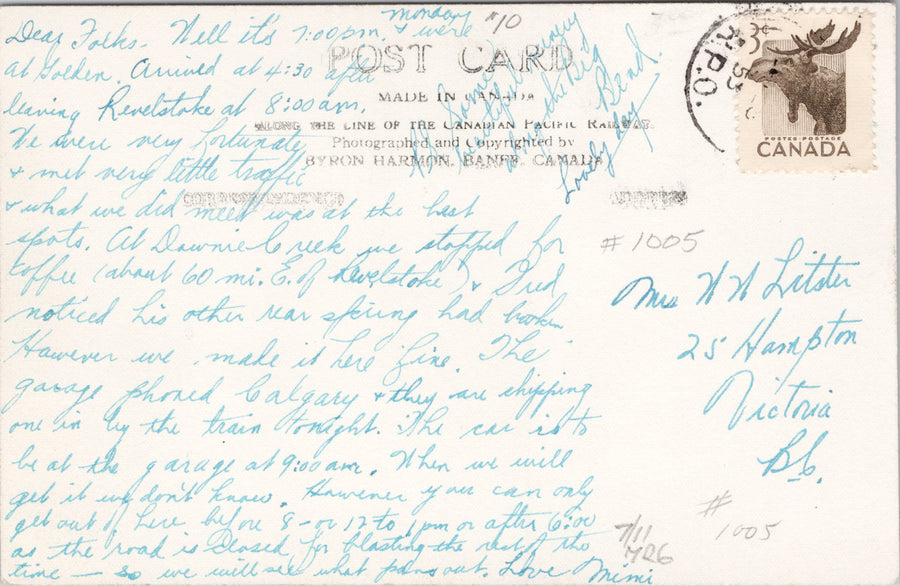 Monday
#10
Dear Folks. Well it's 7:00 p.m. & were
at Golden. Arrived at 4:30 after
leaving Revelstoke at 8:00 am.
We were very fortunate
& met very little traffic
& what we did meet was at the best
spots. At Downie Creek we stopped for
coffee (about 60 mi. E. of Revelstoke) & Fred
noticed his other rear spring had broken
However we made it here fine. The
garage phoned Calgary & they are shipping
one in by the train tonight. The car is to
be at the garage at 9:00 am. When we will
get it we don't know. However you can only
get out of here before 8 - or 12 to 1 pm or after 6:00
as the road is closed for blasting the rest of the
time — so we will see what pans out. Love Mimi
the Big
Bend.
Lovely day
POST CARD
MADE IN CANADA
ALONG THE LINE OF THE CANADIAN PACIFIC RAILWAY.
Photographed and Copyrighted by
BYRON HARMON, BANFF, CANADA
CORRESPONDENCE
ADDRESS
R.P.O.
53
3¢
POSTES-POSTAGE
CANADA
#1005
Mrs W W Litster
25 Hampton
Victoria
B.C.
#
1005
7/11
MR6